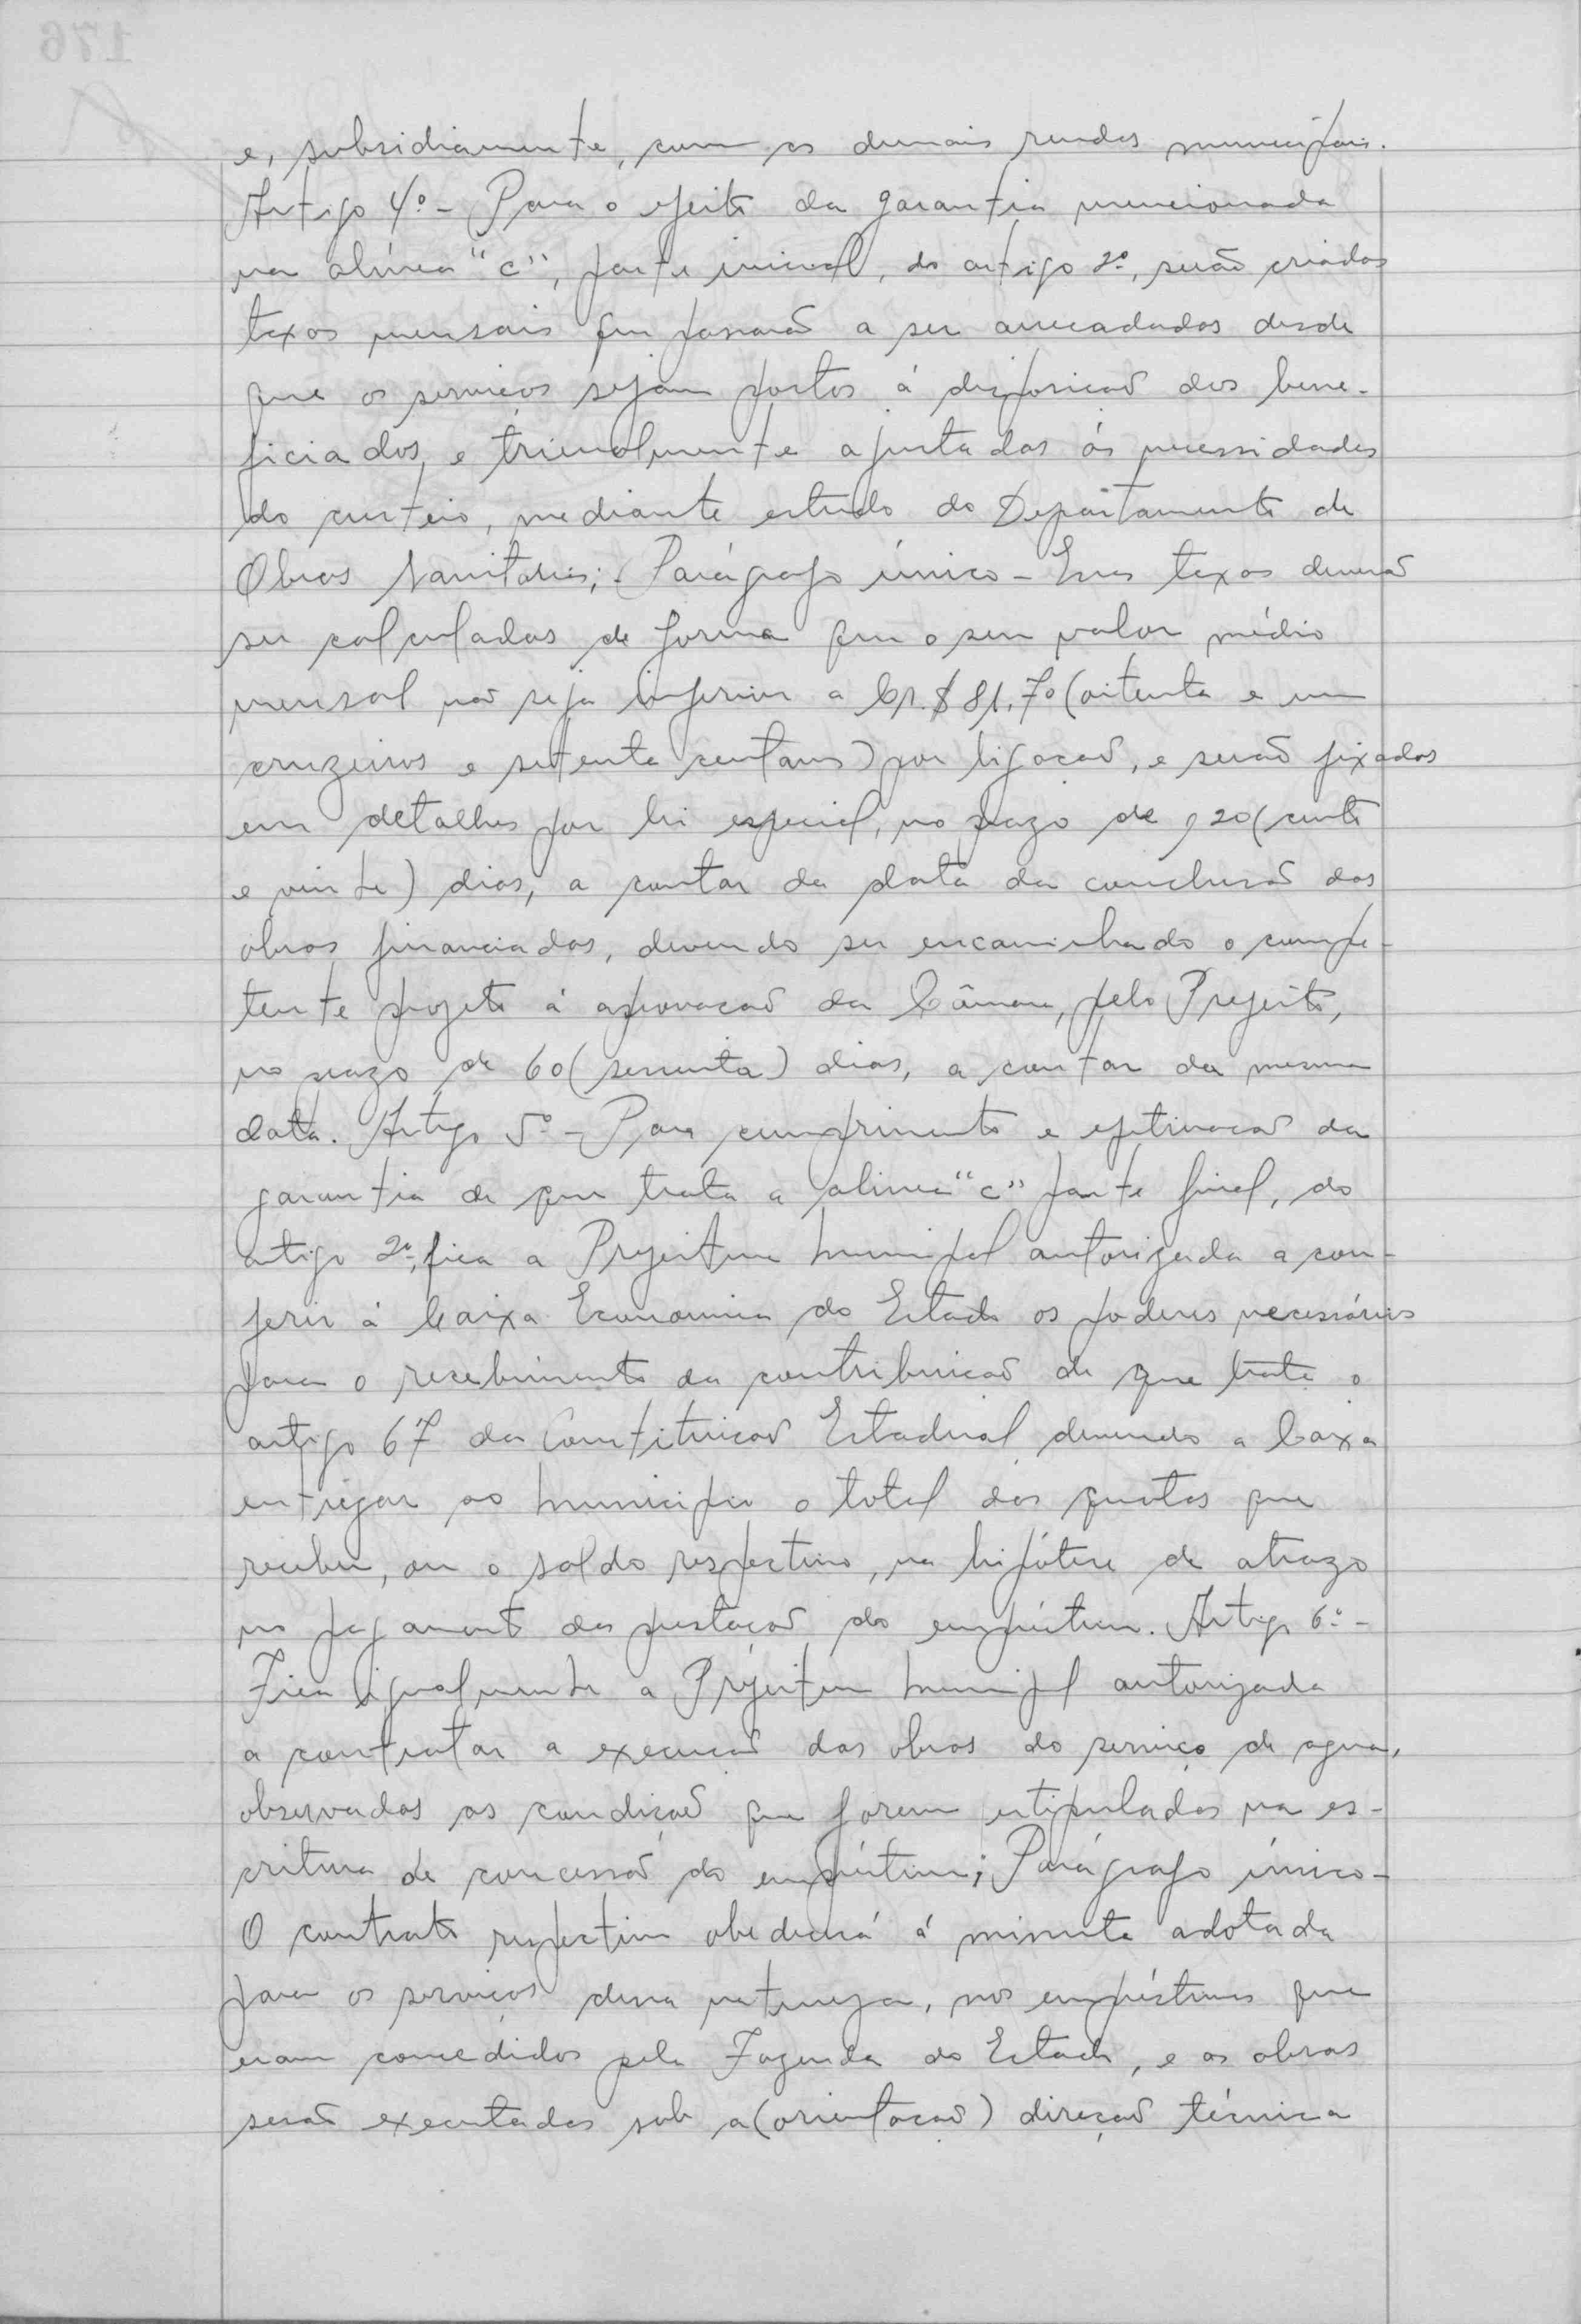 e, subsidiamente, com as demais rendas municipais.
Artigo 4º - Para o efeito da garantia mencionada
na alínea "c", parte inicial, do artigo 2º, serão criadas
taxas mensais que passarão a ser arrecadadas desde
que os serviços sejam postos á disposicaõ dos bene-
ficiados, e trienalmente ajustadas ás necessidades
do custeio, mediante estudo do Departamento de
Obras Sanitarias; - Parágrafo único - Essas taxas deverão
ser calculadas de forma que o seu valor médio
mensal naõ seja inferior a Cr.$ 81,70 (oitenta e um
cruzeiros e setenta centavos) por ligacaõ, e serão fixadas
em detalhes por lei especial, no prazo de 120 (cento
e vinte) dias, a contar da data da conclusaõ das
obras financiadas, devendo ser encaminhado o compe-
tente projeto á aprovacaõ da Câmara, pelo Prefeito,
no prazo de 60 (sessenta) dias, a contar da mesma
data. Artigo 5º - Para cumprimento e efetivacaõ da
garantia de que trata a alinea "c" parte final, do
artigo 2º, fica a Prefeitura Municipal autorizada a con-
ferir á Caixa Economica do Estado os poderes necessários
para o recebimento da contribuicaõ de que trata o
artigo 67 da Constituicaõ Estadual devendo a Caixa
entregar ao Municipio o total das quotas que
receber, ou o saldo respectivo, na hipótese de atrazo
no pagamento da prestacaõ do empréstimo. Artigo 6º -
Fica igualmente a Prefeitura Municipal autorizada
a contratar a execucaõ das obras do serviço de agua,
observadas as condiçaõ que forem estipuladas na es-
critura de concessaõ do empréstimo; Parágrafo único -
O contrato respectivo obedecerá á minuta adotada
para os serviços dessa natureza, nos empréstimos que
eram concedidos pela Fazenda do Estado, e as obras
seraõ executadas sob a (orientacaõ) direçaõ técnica